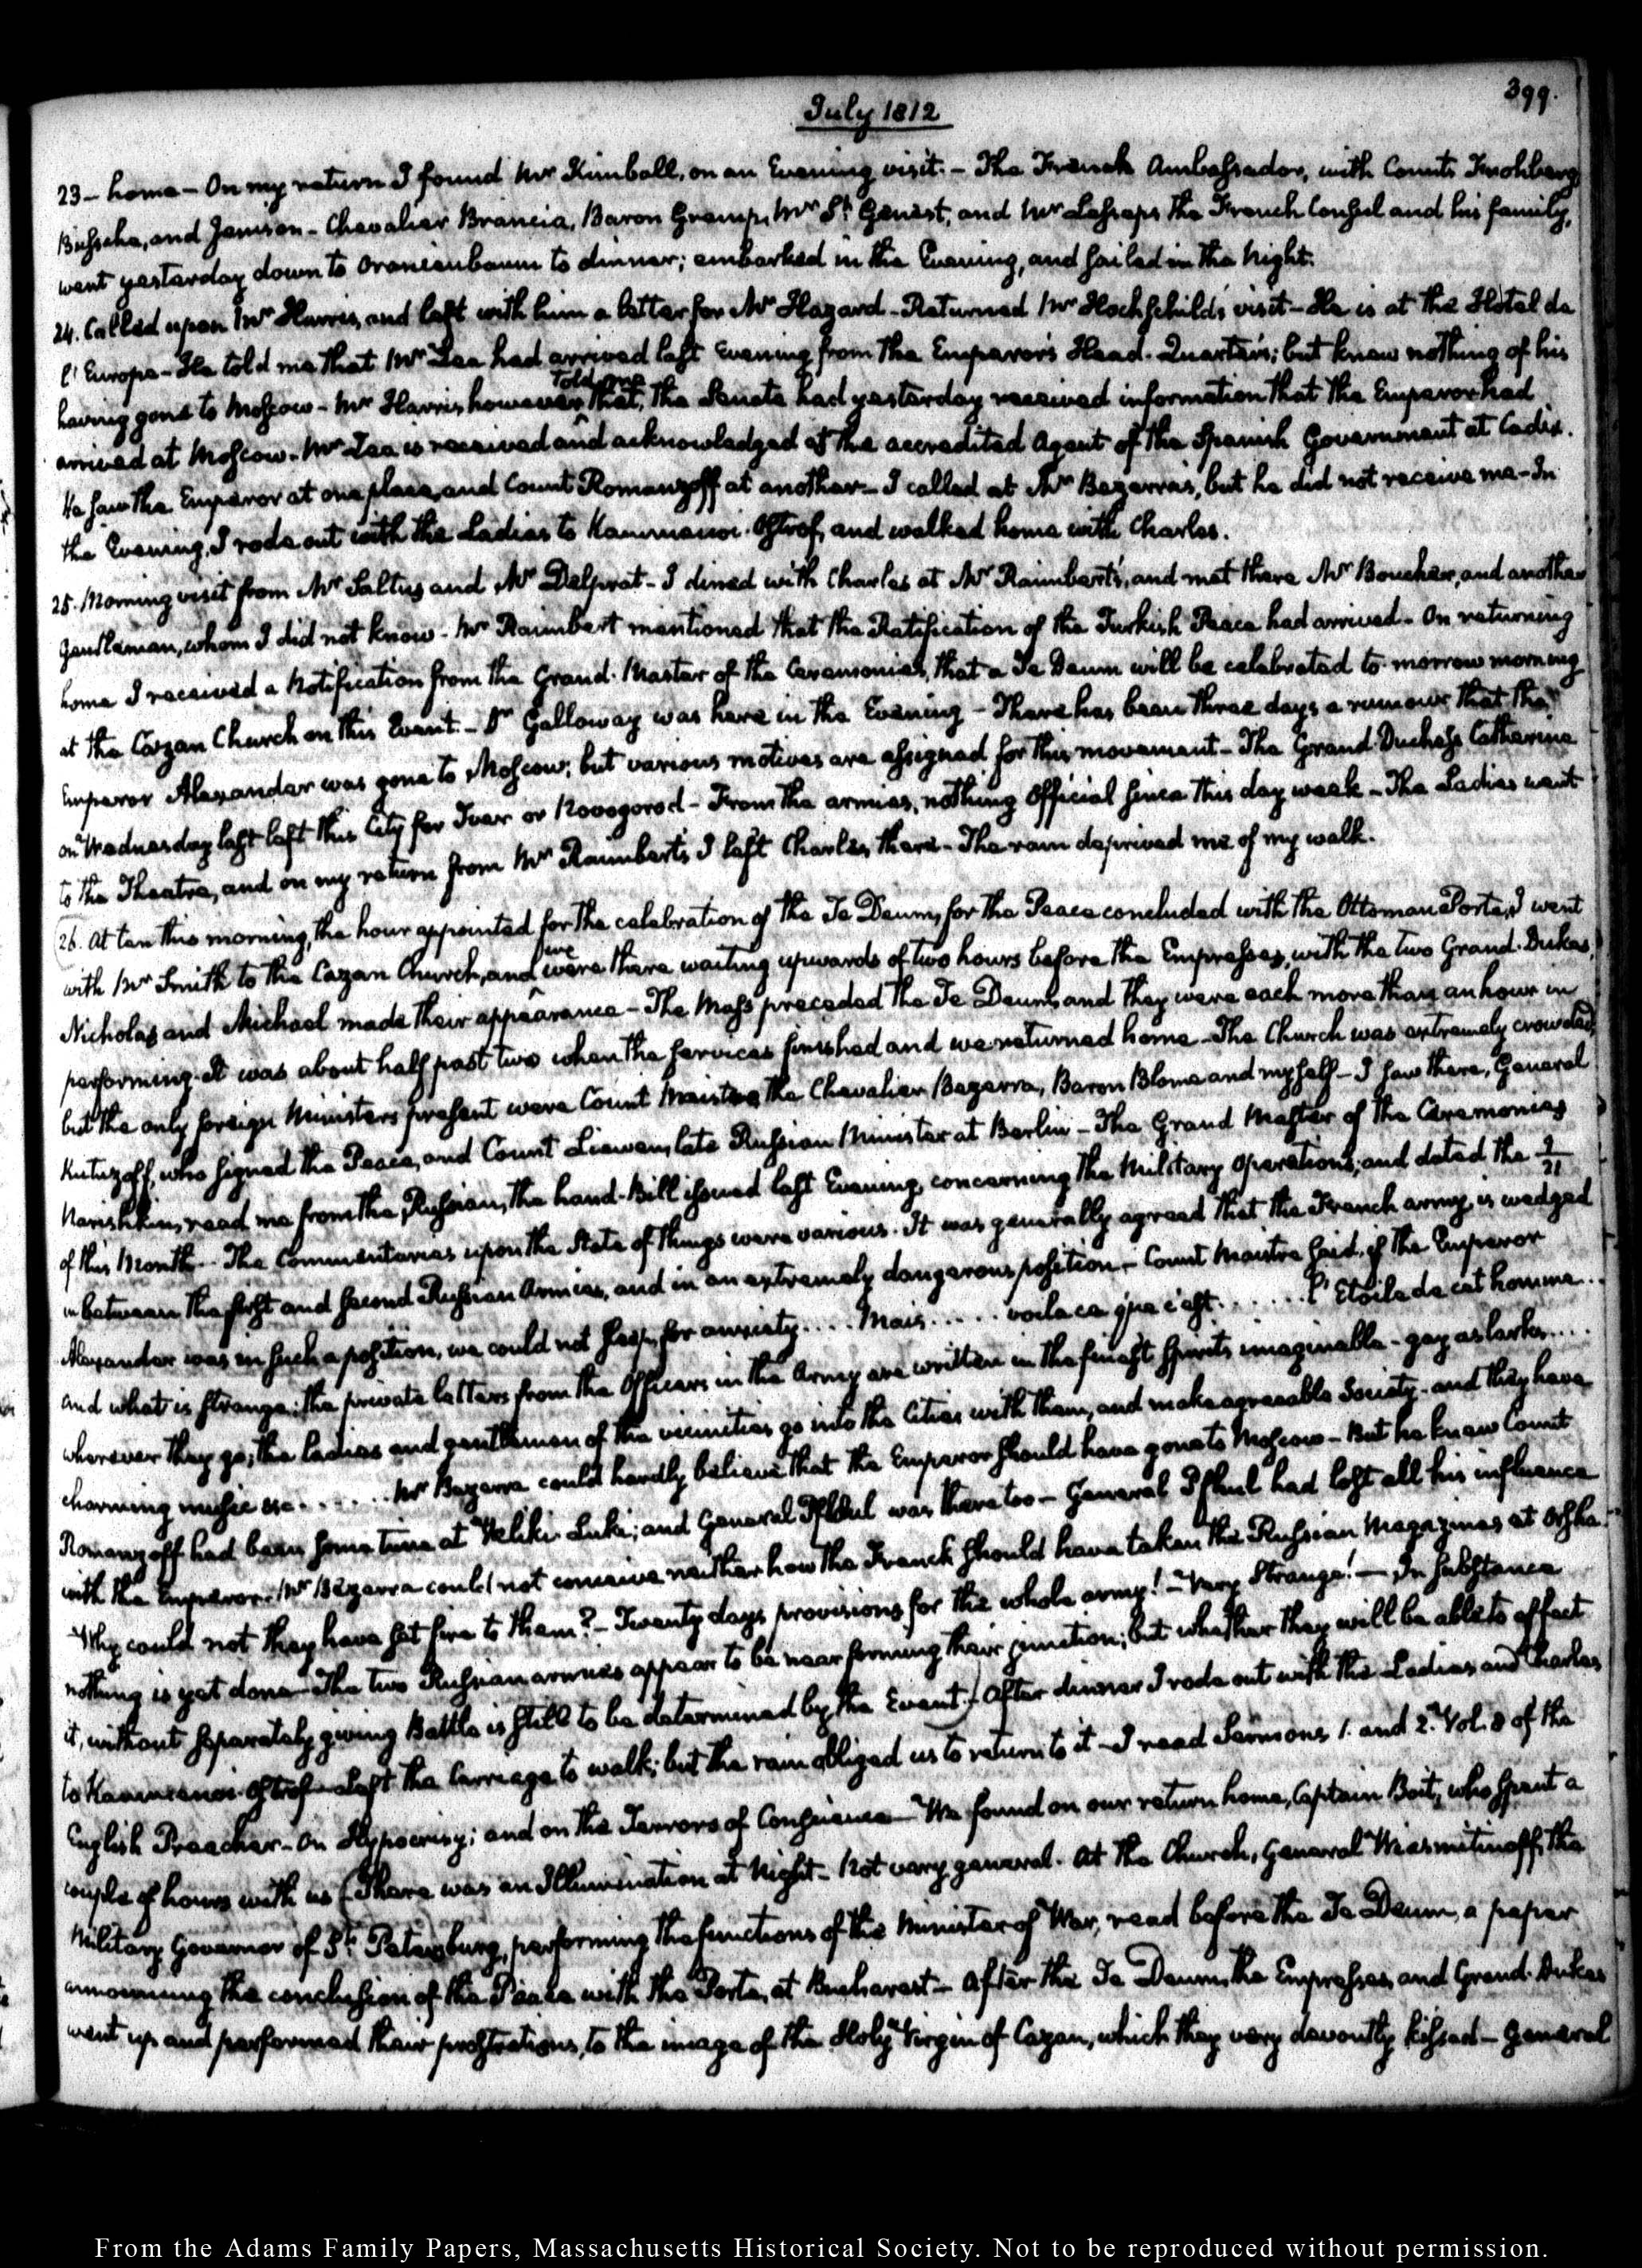 399.
July 1812
23 – home – On my return I found Mr Kimball, on an Evening visit. – The French Ambassador, with Counts
Bussche, and Jenison – Chevalier Brancia, Baron Gremp, Mr St Genest, and Mr Lesseps the French Consul and his family,
went yesterday down to Oranienbaum to dinner; embarked in the Evening, and sailed in the Night.
24. Called upon Mr Harris, and left with him a letter for Mr Hazard – Returned Mr Hochschild's visit – He is at the Hotel de
l'Europe – He told me that Mr Zea had arrived last Evening from the Emperor's Head-Quarters; but knew nothing of his
having gone to Moscow – Mr Harris however told me that, the Senate had yesterday received information that the Emperor had
arrived at Moscow. Mr Zea is received and acknowledged as the accredited Agent of the Spanish Government at Cadiz.
He saw the Emperor at one place, and Count Romanzoff at another – I called at Mr Bezerra's, but he did not receive me – In
the Evening, I rode out with the Ladies to Kammenoi-Ostrof, and walked home with Charles.
25. Morning visit from Mr Saltus and Mr Delprat – I dined with Charles at Mr Raimbert's, and met there Mr Boucher, and another
Gentleman, whom I did not know – Mr Raimbert mentioned that the Ratification of the Turkish Peace had arrived – On returning
home I received a Notification from the Grand-Master of the Ceremonies, that a Te Deum will be celebrated to-morrow morning
at the Cazan Church on this Event. – Dr Galloway was here in the Evening – There has been three days a rumour that the
Emperor Alexander was gone to Moscow; but various motives are assigned for this movement – The Grand-Duchess Catherine
on Wednesday last left this City for Twer or Novogorod – From the armies, nothing Official since this day week – The Ladies went
to the Theatre, and on my return from Mr Raimbert's I left Charles there – The rain deprived me of my walk.
(26. At ten this morning, the hour appointed for the celebration of the Te Deum, for the Peace concluded with the Ottoman Porte, I went
with Mr Smith to the Cazan Church, and we were there waiting upwards of two hours before the Empresses, with the two Grand-Dukes,
Nicholas and Michael made their appearance – The Mass preceded the Te Deum, and they were each more than an hour in
performing. It was about half past two when the services finished and we returned home – The Church was extremely crowded,
but the only foreign Ministers present were Count Maistre, the Chevalier Bezerra, Baron Blome and myself – I saw there, General
Kutuzoff, who signed the Peace, and Count Liewen, late Russian Minister at Berlin – The Grand Master of the Ceremonies
Narishkin, read me from the Russian, the hand-Bill issued last Evening, concerning the Military Operations, and dated the 9/21
of this Month. – The Commentaries upon the State of things were various. It was generally agreed that the French army is wedged
in between the first and second Russian Armies, and in an extremely dangerous position – Count Maistre said, if the Emperor
Alexander was in such a position, we could not sleep for anxiety.... Mais..... voila ce que c'est...... l'Etoile de cet homme...
And what is strange; the private letters from the Officers in the Army are written in the finest spirits imaginable – gay as larks....
wherever they go, the ladies and gentlemen of the vicinities go into the Cities with them, and make agreeable Society – and they have
charming music &c....... Mr Bezerra could hardly believe that the Emperor should have gone to Moscow – But he knew Count
Romanzoff had been some time at Weliki-Luki; and General Pfhul was there too – General Pfhul had lost all his influence
with the Emperor. Mr Bezerra could not conceive neither how the French should have taken the Russian Magazines at Orsha.
Why could not they have set fire to them? – Twenty days provisions for the whole army! – Very Strange! – In Substance
nothing is yet done – The two Russian armies appear to be near forming their junction; but whether they will be able to effect
it, without separately giving Battle is still to be determined by the Event.) After dinner I rode out with the Ladies and Charles
to Kammenoi-Ostrof – Left the Carriage to walk; but the rain obliged us to return to it – I read Sermons 1. and 2. Vol. 8 of the
English Preacher – On Hypocrisy; and on the Terrors of Conscience – We found on our return home, Captain Boit, who spent a
couple of hours with us (There was an Illumination at Night – Not very general. At the Church, General Wiasmitinoff, the
Military Governor of St Petersburg, performing the functions of the Minister of War, read before the Te Deum, a paper
announcing the conclusion of the Peace with the Porte, at Bucharest – After the Te Deum, the Empresses and Grand-Dukes
went up and performed their prostrations, to the image of the Holy Virgin of Cazan, which they very devoutly kissed – General
From the Adams Family Papers, Massachusetts Historical Society. Not to be reproduced without permission.